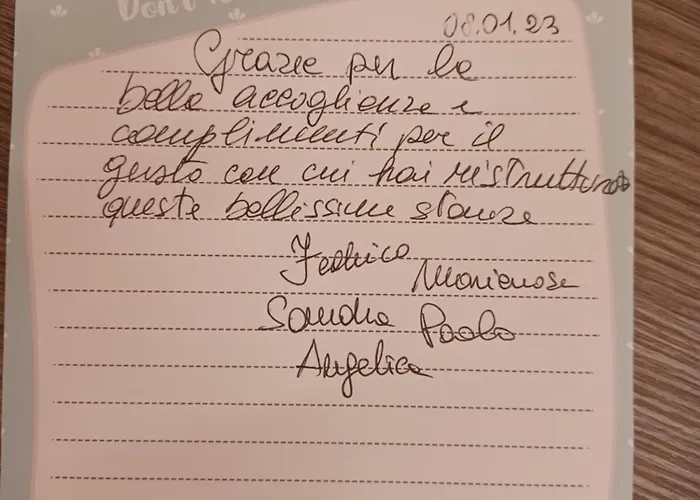 Don't
08.01.23
Grazie per la
bella accoglienza e
complimenti per il
gusto con cui hai ristrutturato
queste bellissime stanze
Federica
Marienose
Sandra Paolo
Angelica